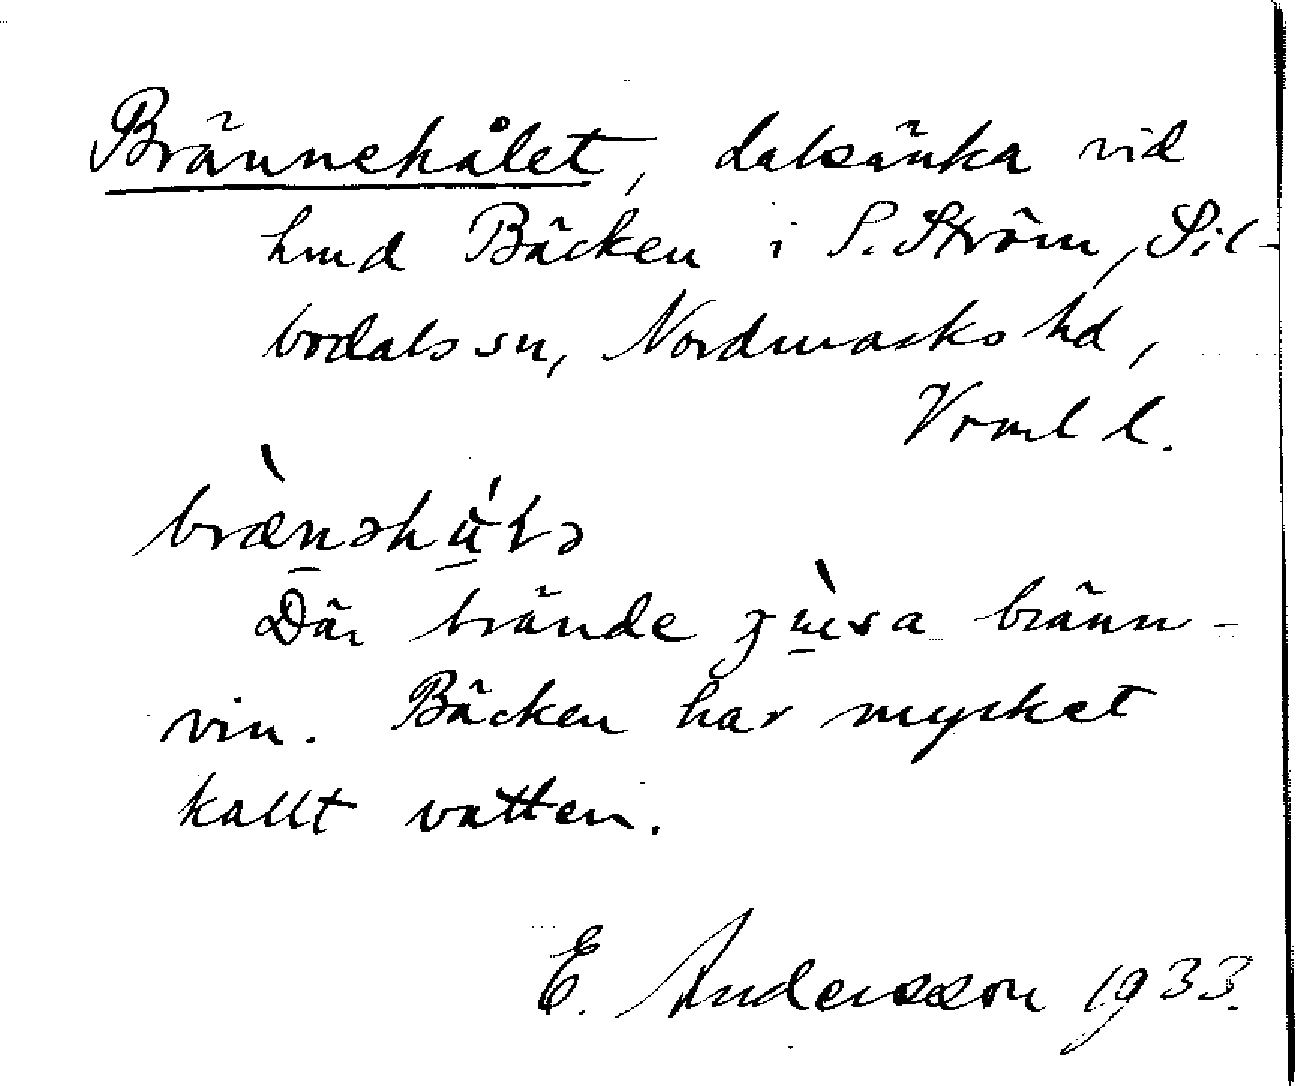 Brännehålet, dalsänka vid
hmd Bäcken i S. Ström, Sil-
bodals sn, Nordmarks hd,
Vrml l.
Där brände bränn-
vin. Bäcken har mycket
kallt vatten.
E. Andersson 1933.